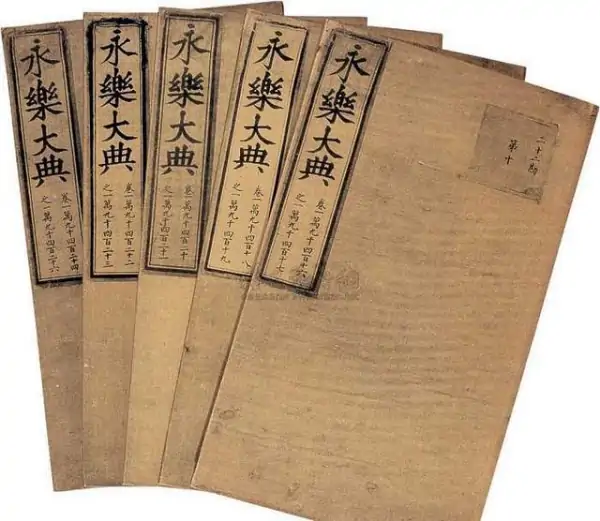 永樂大典
卷一萬九千四百二十四
之一萬九千四百二十六
永樂大典
卷一萬九千四百二十二
之一萬九千四百二十三
永樂大典
卷一萬九千四百二十
之一萬九千四百二十一
永樂大典
卷一萬九千四百十八
之一萬九千四百十九
永樂大典
卷一萬九千四百十六
之一萬九千四百十七
二十二勘
第十